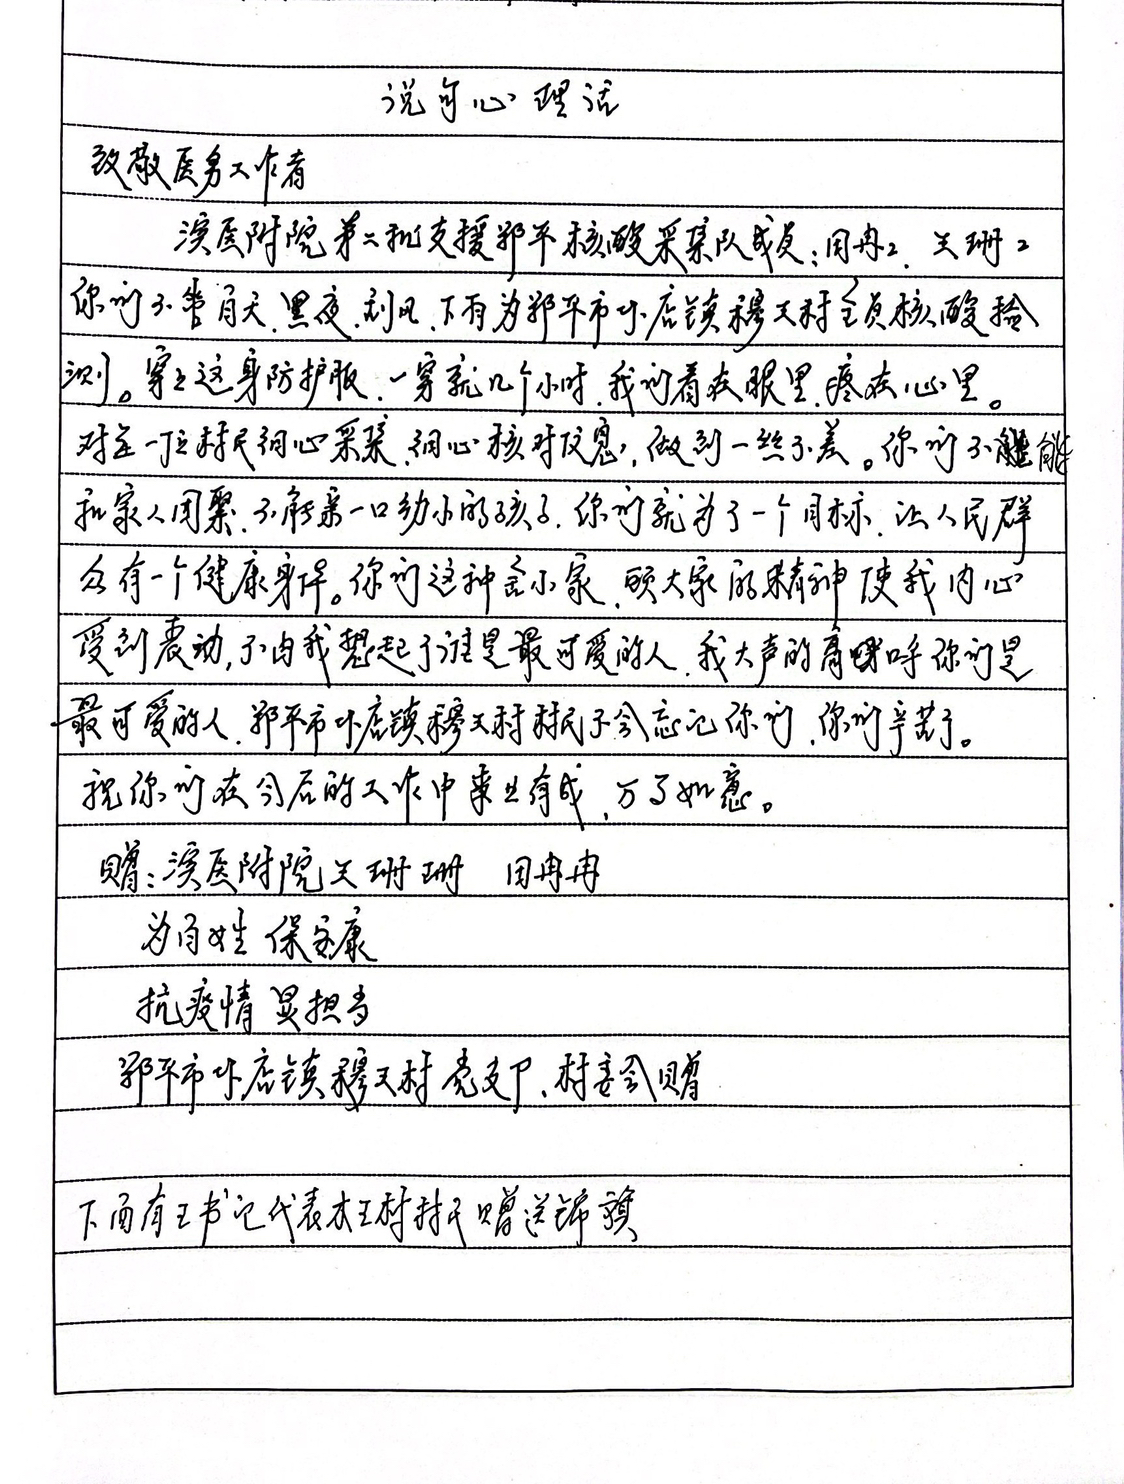 说句心理话
致敬医务工作者
滨医附院第二批支援邹平核酸采集队成员:闫冉2、王珊2
你们不管白天、黑夜、刮风、下雨为邹平市好店镇穆王村全员核酸捡
测。穿上这身防护服、一穿就几个小时、我们看在眼里、疼在心里。
对每一位村民细心采集、细心核对信息,做到一丝不差。你们不能
和家人团聚、不能亲一口幼小的孩子、你们就为了一个目标、让人民群
众有一个健康身体。你们这种舍小家、顾大家的精神使我内心
受到震动,不由我想起了谁是最可爱的人、我大声的高呼你们是
最可爱的人、邹平市好店镇穆王村村民不会忘记你们、你们辛苦了。
祝你们在今后的工作中事业有成、万事如意。
赠:滨医附院王珊珊 闫冉冉
为百姓 保安康
抗疫情 显担当
邹平市好店镇穆王村党支部、村委会赠
下面有王书记代表本王村村民赠送锦旗